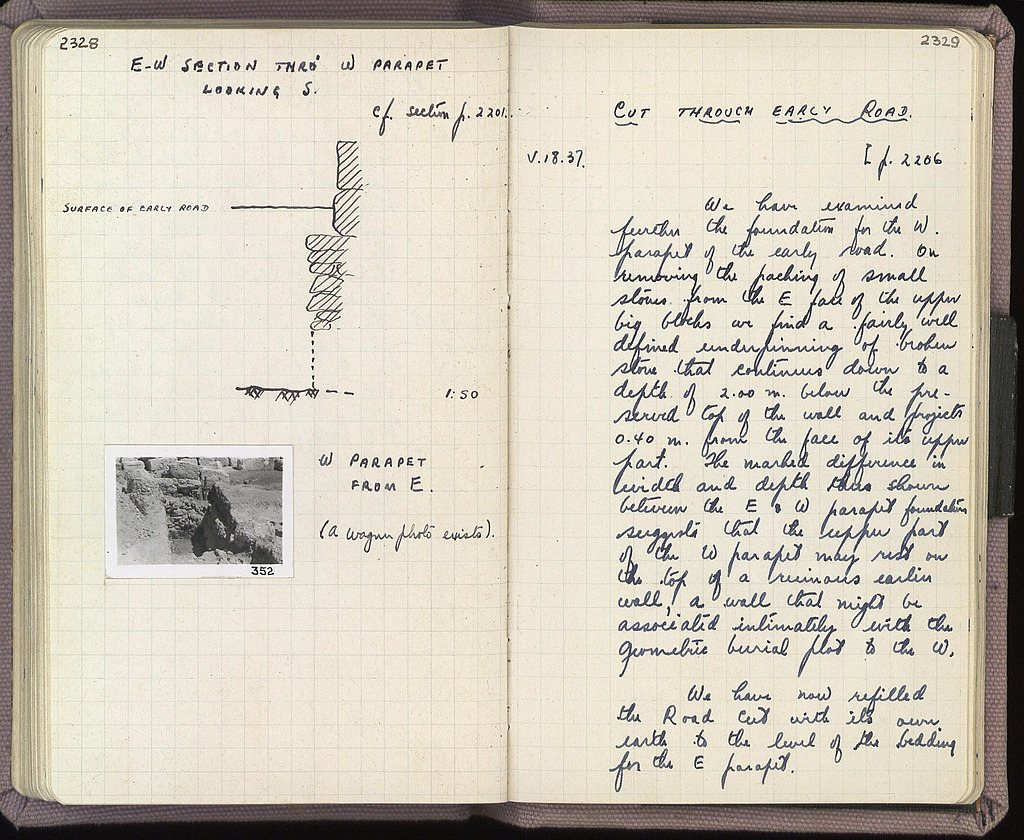 2328
E-W SECTION THRO' W PARAPET
LOOKING S.
cf. section p. 2201.
SURFACE OF EARLY ROAD
1:50
W PARAPET
FROM E.
(A Wagner photo exists).
352
2329
CUT THROUGH EARLY ROAD.
V.18.37.
[p. 2206
We have examined
further the foundation for the W.
parapet of the early road. On
removing the packing of small
stones from the E face of the upper
big blocks we find a fairly well
defined underpinning of broken
stone that continues down to a
depth of 2.00 m. below the pre-
served top of the wall and projects
0.40 m. from the face of its upper
part. The marked difference in
width and depth thus shown
between the E & W parapet foundations
suggests that the upper part
of the W parapet may rest on
the top of a ruinous earlier
wall, a wall that might be
associated intimately with the
Geometric burial plot to the W.
We have now refilled
the Road Cut with its own
earth to the level of the bedding
for the E parapet.